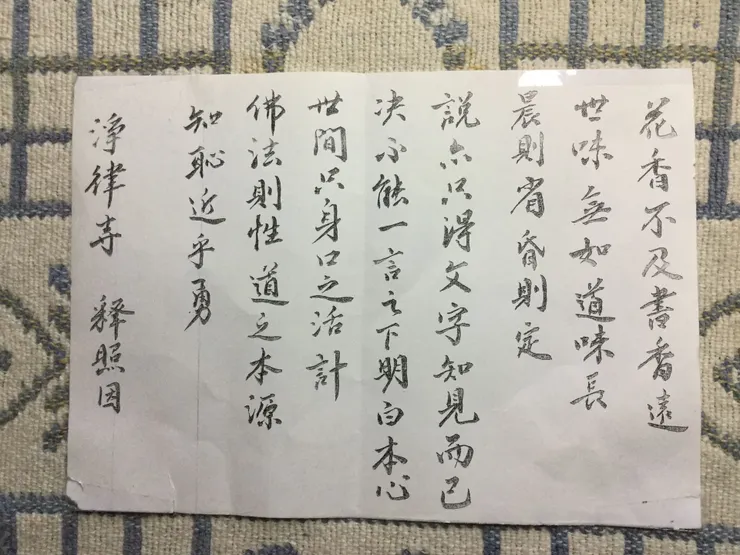 花香不及書香遠
世味無如道味長
晨則省昏則定
説亦只得文字知見而已
决不能一言之下明白本心
世間只身口之活計
佛法則性道之本源
知恥近乎勇
淨律寺 釋照因